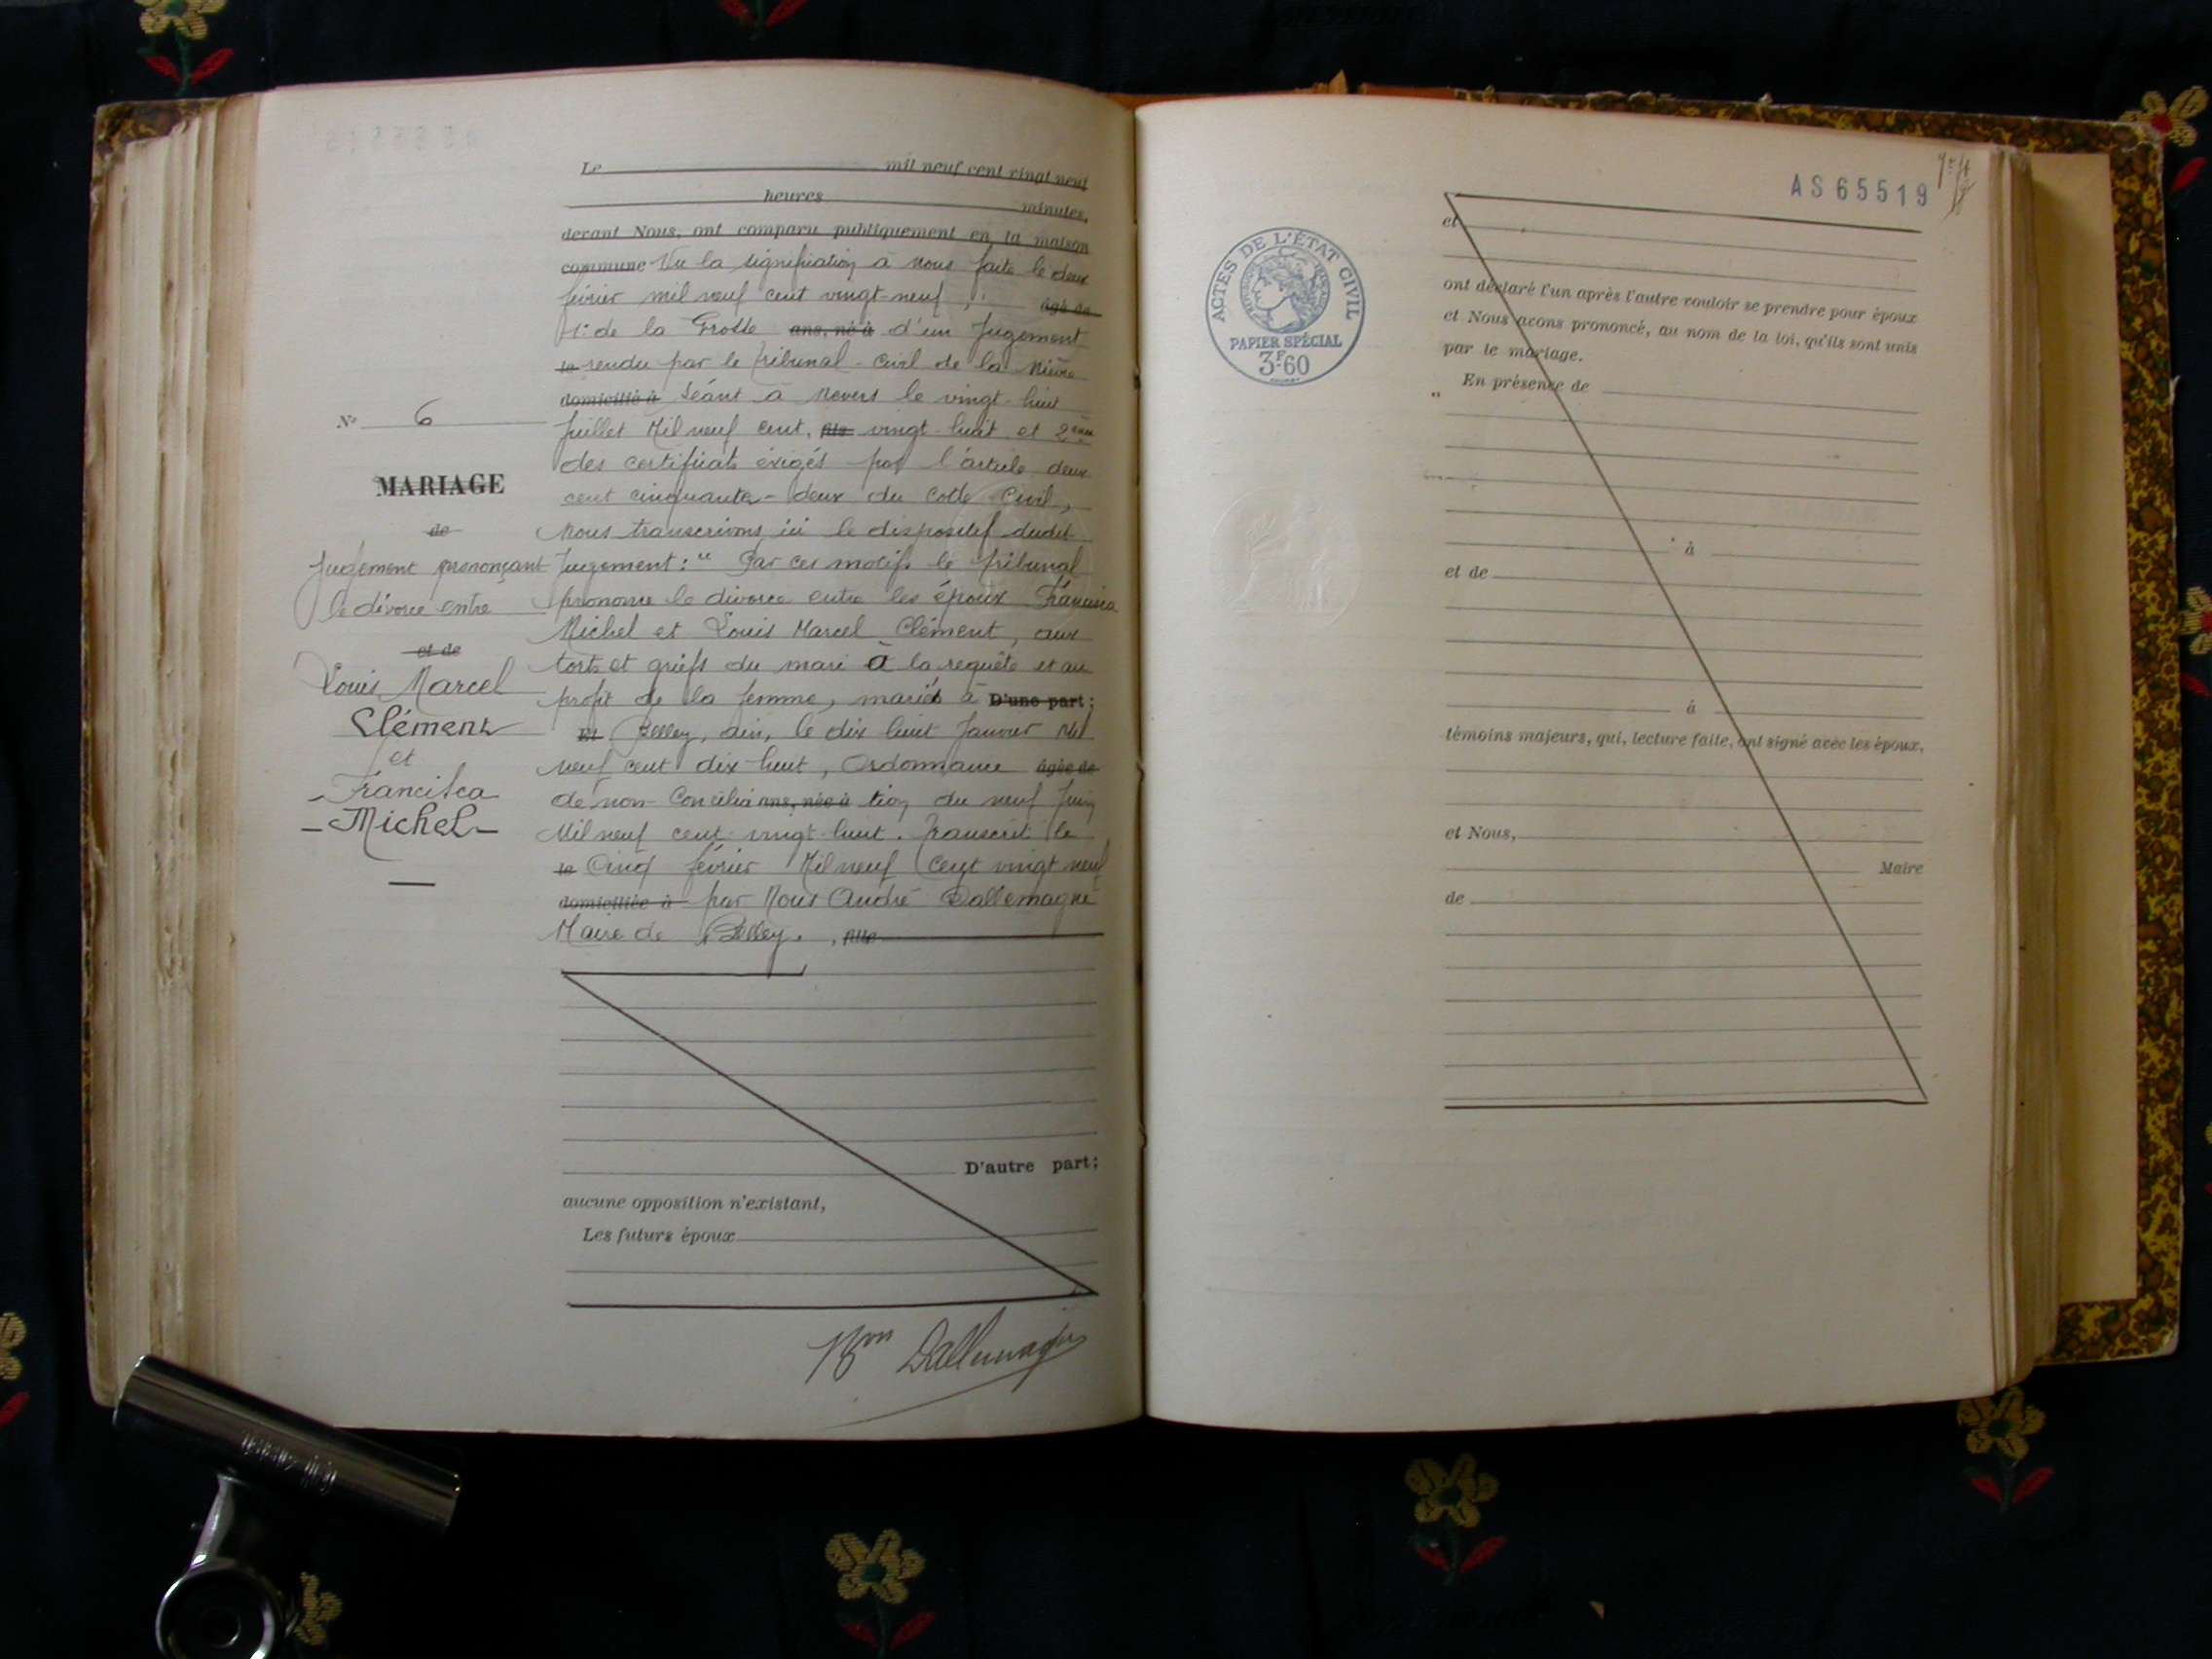 Le mil neuf cent vingt neuf
heures minutes,
devant Nous, ont comparu publiquement en la maison
commune Vu la signification à nous faite le deux
février mil neuf cent vingt-neuf, âgé de
1º de la Grosse ans, né à d'un Jugement
le rendu par le tribunal Civil de la Nièvre
domicilié à Séant à Nevers le vingt-huit
Juillet Mil neuf cent, fils vingt huit et 2ème
des certificats éxigés par l'article deux
cent cinquante-deux du Code Civil,
Nous transcrivons ici le dispositif dudit
Jugement: " Par ces motifs le tribunal
prononce le divorce entre les époux Francisca
Michel et Louis Marcel Clément, aux
torts et griefs du mari à la requête et au
profit de la femme, mariés à D'une part;
Et Belley, ain, le dix huit Janvier Mil
neuf cent dix huit, Ordonnance âgée de
de non-Concilia ans, née à tion du neuf Juin
Mil neuf cent vingt-huit. Transcrit le
le Cinq février Mil neuf Cent vingt neuf
domiciliée à par Nous André Dallemagne
Maire de Belley. , fille
D'autre part;
aucune opposition n'existant,
Les futurs époux
Bon Dallemagne
Nº 6
MARIAGE
de
Jugement prononçant
le divorce entre
et de
Louis Marcel
Clément
et
Francisca
Michel
AS65519
ACTES DE L'ÉTAT CIVIL
PAPIER SPÉCIAL
3F.60
et
ont déclaré l'un après l'autre vouloir se prendre pour époux
et Nous avons prononcé, au nom de la loi, qu'ils sont unis
par le mariage.
En présence de
à
et de
à
témoins majeurs, qui, lecture faite, ont signé avec les époux,
et Nous,
Maire
de